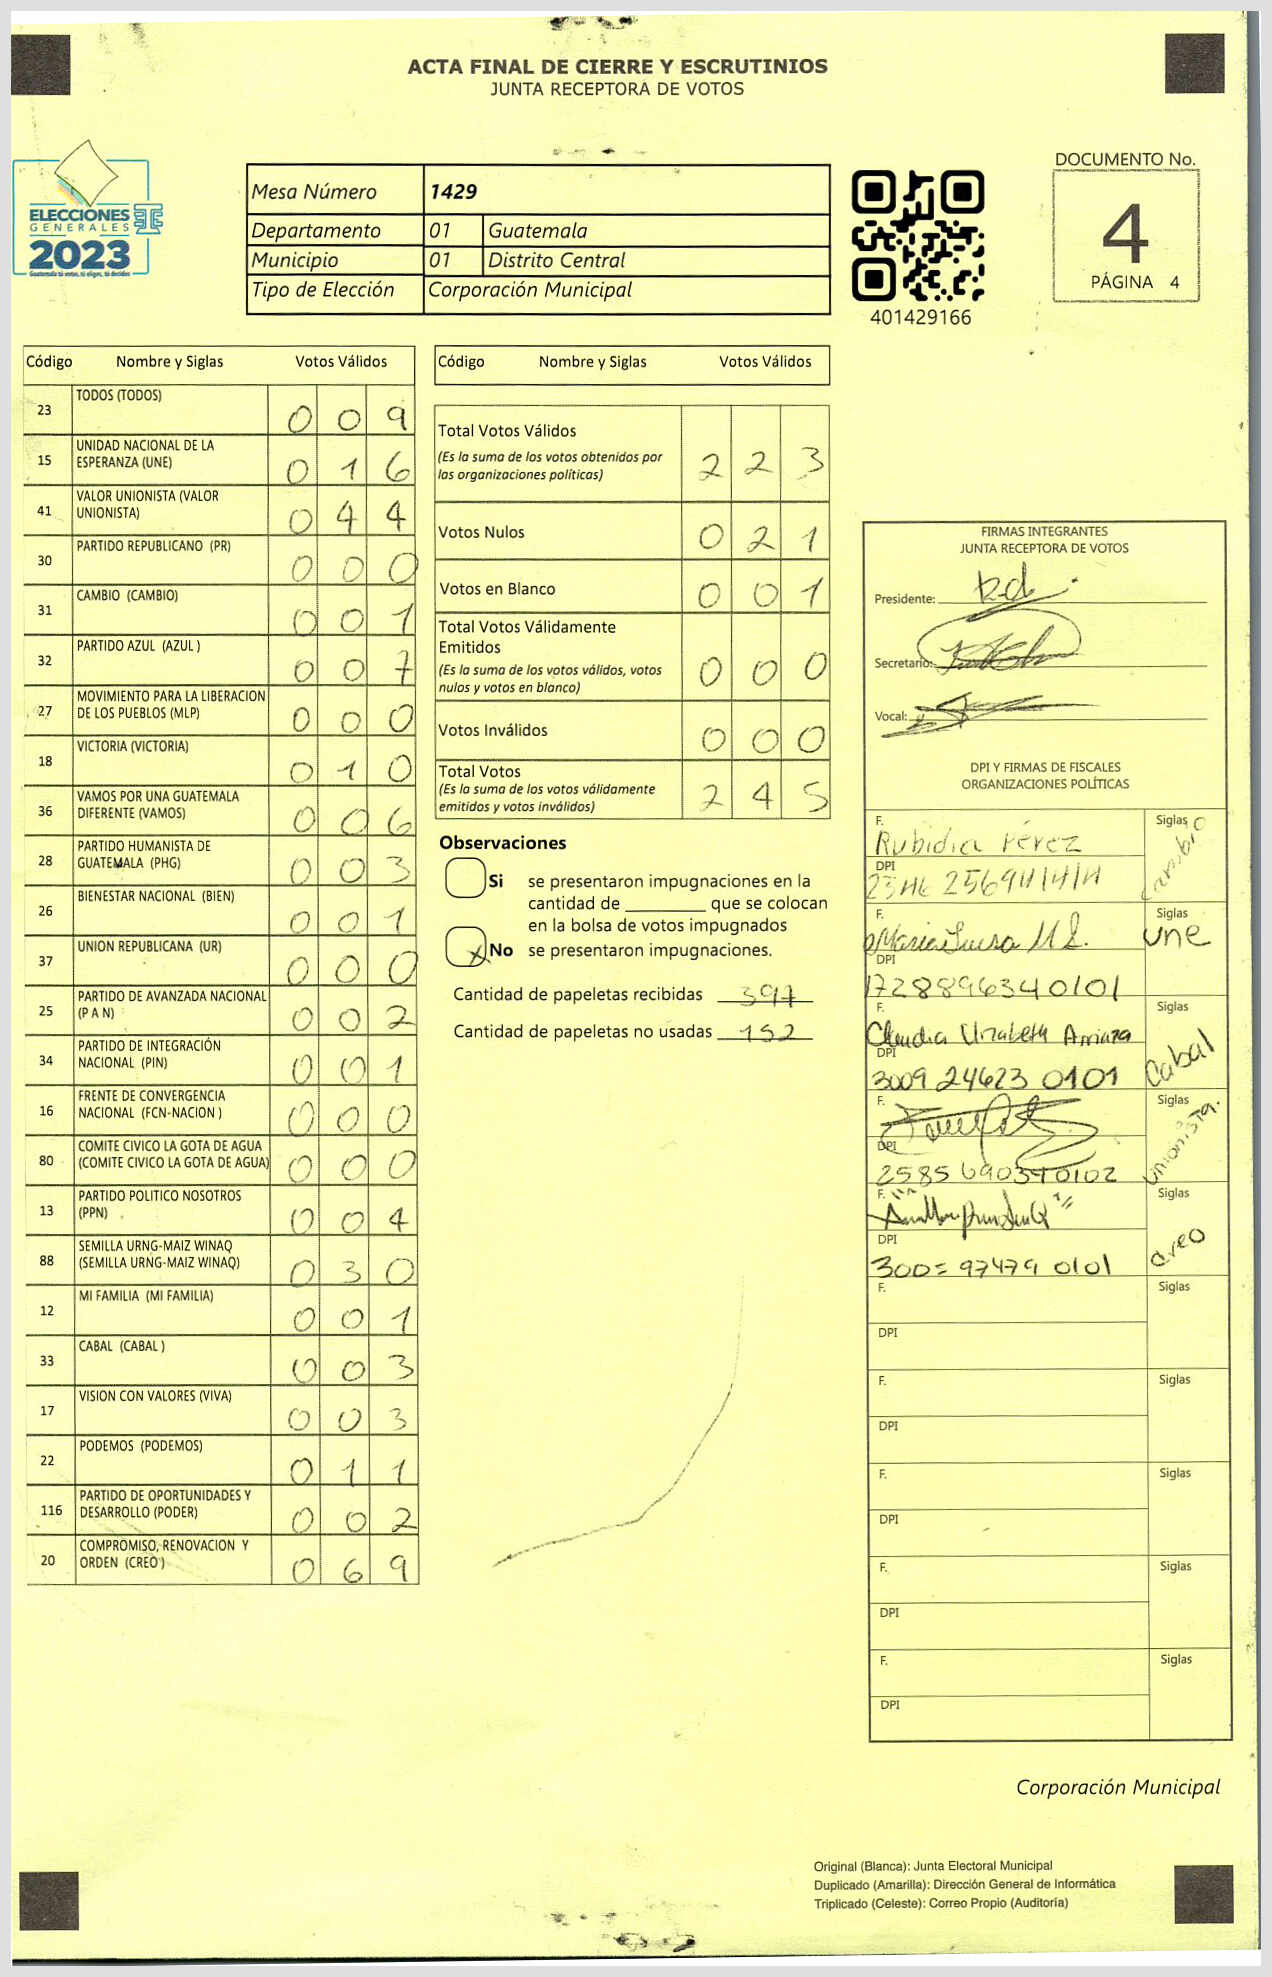 ACTA FINAL DE CIERRE Y ESCRUTINIOS
JUNTA RECEPTORA DE VOTOS
ELECCIONES
GENERALES
2023
Guatemala tú votas, tú eliges, tú decides
Mesa Número 1429
Departamento 01 Guatemala
Municipio 01 Distrito Central
Tipo de Elección Corporación Municipal
401429166
DOCUMENTO No.
4
PÁGINA 4
Código Nombre y Siglas Votos Válidos
23 TODOS (TODOS) 0 0 9
15 UNIDAD NACIONAL DE LA ESPERANZA (UNE) 0 1 6
41 VALOR UNIONISTA (VALOR UNIONISTA) 0 4 4
30 PARTIDO REPUBLICANO (PR) 0 0 0
31 CAMBIO (CAMBIO) 0 0 1
32 PARTIDO AZUL (AZUL ) 0 0 7
27 MOVIMIENTO PARA LA LIBERACION DE LOS PUEBLOS (MLP) 0 0 0
18 VICTORIA (VICTORIA) 0 1 0
36 VAMOS POR UNA GUATEMALA DIFERENTE (VAMOS) 0 0 6
28 PARTIDO HUMANISTA DE GUATEMALA (PHG) 0 0 3
26 BIENESTAR NACIONAL (BIEN) 0 0 1
37 UNION REPUBLICANA (UR) 0 0 0
25 PARTIDO DE AVANZADA NACIONAL (P A N) 0 0 2
34 PARTIDO DE INTEGRACIÓN NACIONAL (PIN) 0 0 1
16 FRENTE DE CONVERGENCIA NACIONAL (FCN-NACION ) 0 0 0
80 COMITE CIVICO LA GOTA DE AGUA (COMITE CIVICO LA GOTA DE AGUA) 0 0 0
13 PARTIDO POLITICO NOSOTROS (PPN) 0 0 4
88 SEMILLA URNG-MAIZ WINAQ (SEMILLA URNG-MAIZ WINAQ) 0 3 0
12 MI FAMILIA (MI FAMILIA) 0 0 1
33 CABAL (CABAL ) 0 0 3
17 VISION CON VALORES (VIVA) 0 0 3
22 PODEMOS (PODEMOS) 0 1 1
116 PARTIDO DE OPORTUNIDADES Y DESARROLLO (PODER) 0 0 2
20 COMPROMISO, RENOVACION Y ORDEN (CREO ) 0 6 9
Código Nombre y Siglas Votos Válidos
Total Votos Válidos 2 2 3
(Es la suma de los votos obtenidos por
las organizaciones políticas)
Votos Nulos 0 2 1
Votos en Blanco 0 0 1
Total Votos Válidamente
Emitidos 0 0 0
(Es la suma de los votos válidos, votos
nulos y votos en blanco)
Votos Inválidos 0 0 0
Total Votos 2 4 5
(Es la suma de los votos válidamente
emitidos y votos inválidos)
Observaciones
Si se presentaron impugnaciones en la
cantidad de ________ que se colocan
en la bolsa de votos impugnados
X No se presentaron impugnaciones.
Cantidad de papeletas recibidas 397
Cantidad de papeletas no usadas 152
FIRMAS INTEGRANTES
JUNTA RECEPTORA DE VOTOS
Presidente:
Secretario:
Vocal:
DPI Y FIRMAS DE FISCALES
ORGANIZACIONES POLÍTICAS
F. Rubidia Pérez Siglas Cambio
DPI
F. Siglas une
DPI 1728896340101
F. Claudia Arriaza Siglas Cabal
DPI 3009 24623 0101
F. Siglas unionista.
DPI 2585 690340102
F. Siglas creo
DPI 3005 97479 0101
F. Siglas
DPI
F. Siglas
DPI
F. Siglas
DPI
F. Siglas
DPI
F. Siglas
DPI
Corporación Municipal
Original (Blanca): Junta Electoral Municipal
Duplicado (Amarilla): Dirección General de Informática
Triplicado (Celeste): Correo Propio (Auditoría)